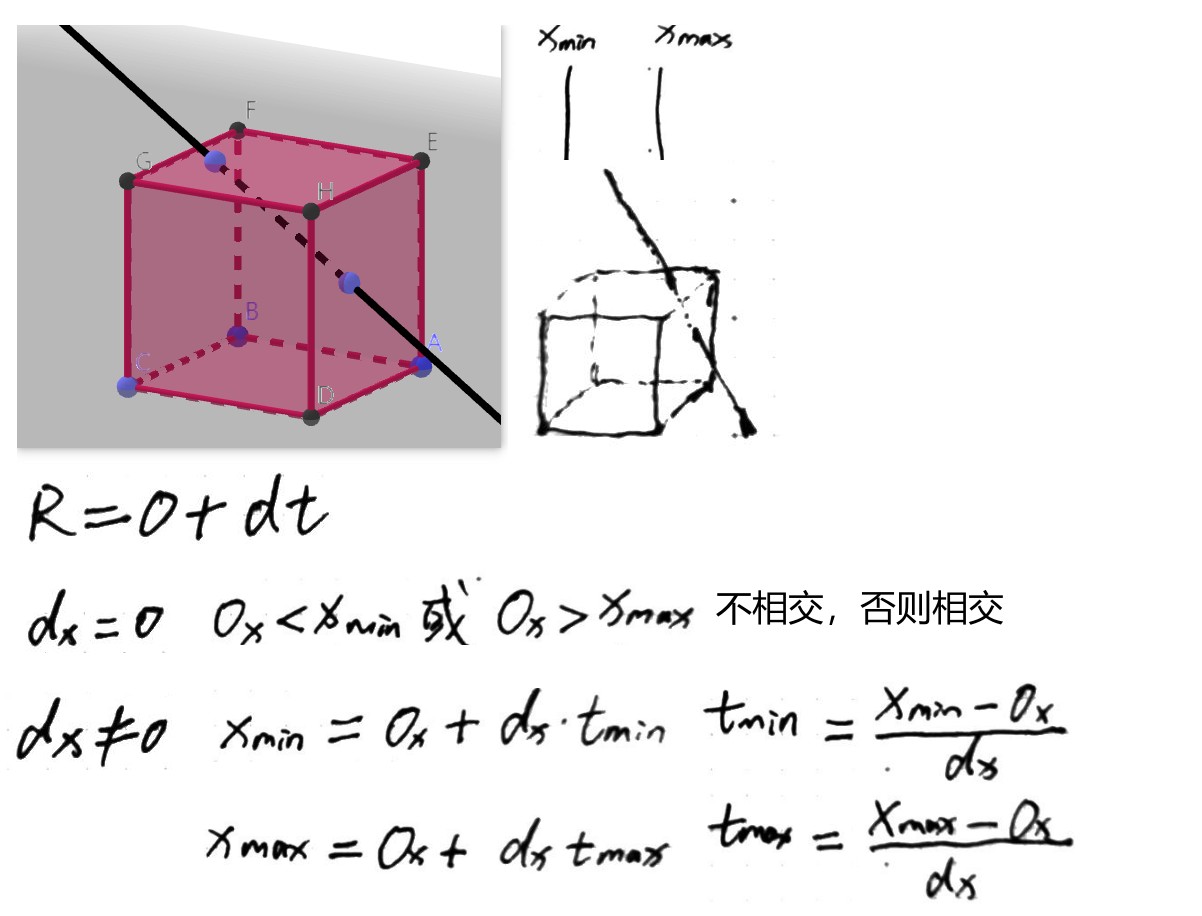 x_min x_max
F
E
G
H
B
A
C
D
R=O+dt
d_x=0 O_x<x_min或 O_x>x_max 不相交，否则相交
d_x≠0 x_min = O_x + d_x·t_min t_min = (x_min-O_x)/d_x
x_max = O_x + d_x t_max t_max = (x_max-O_x)/d_x